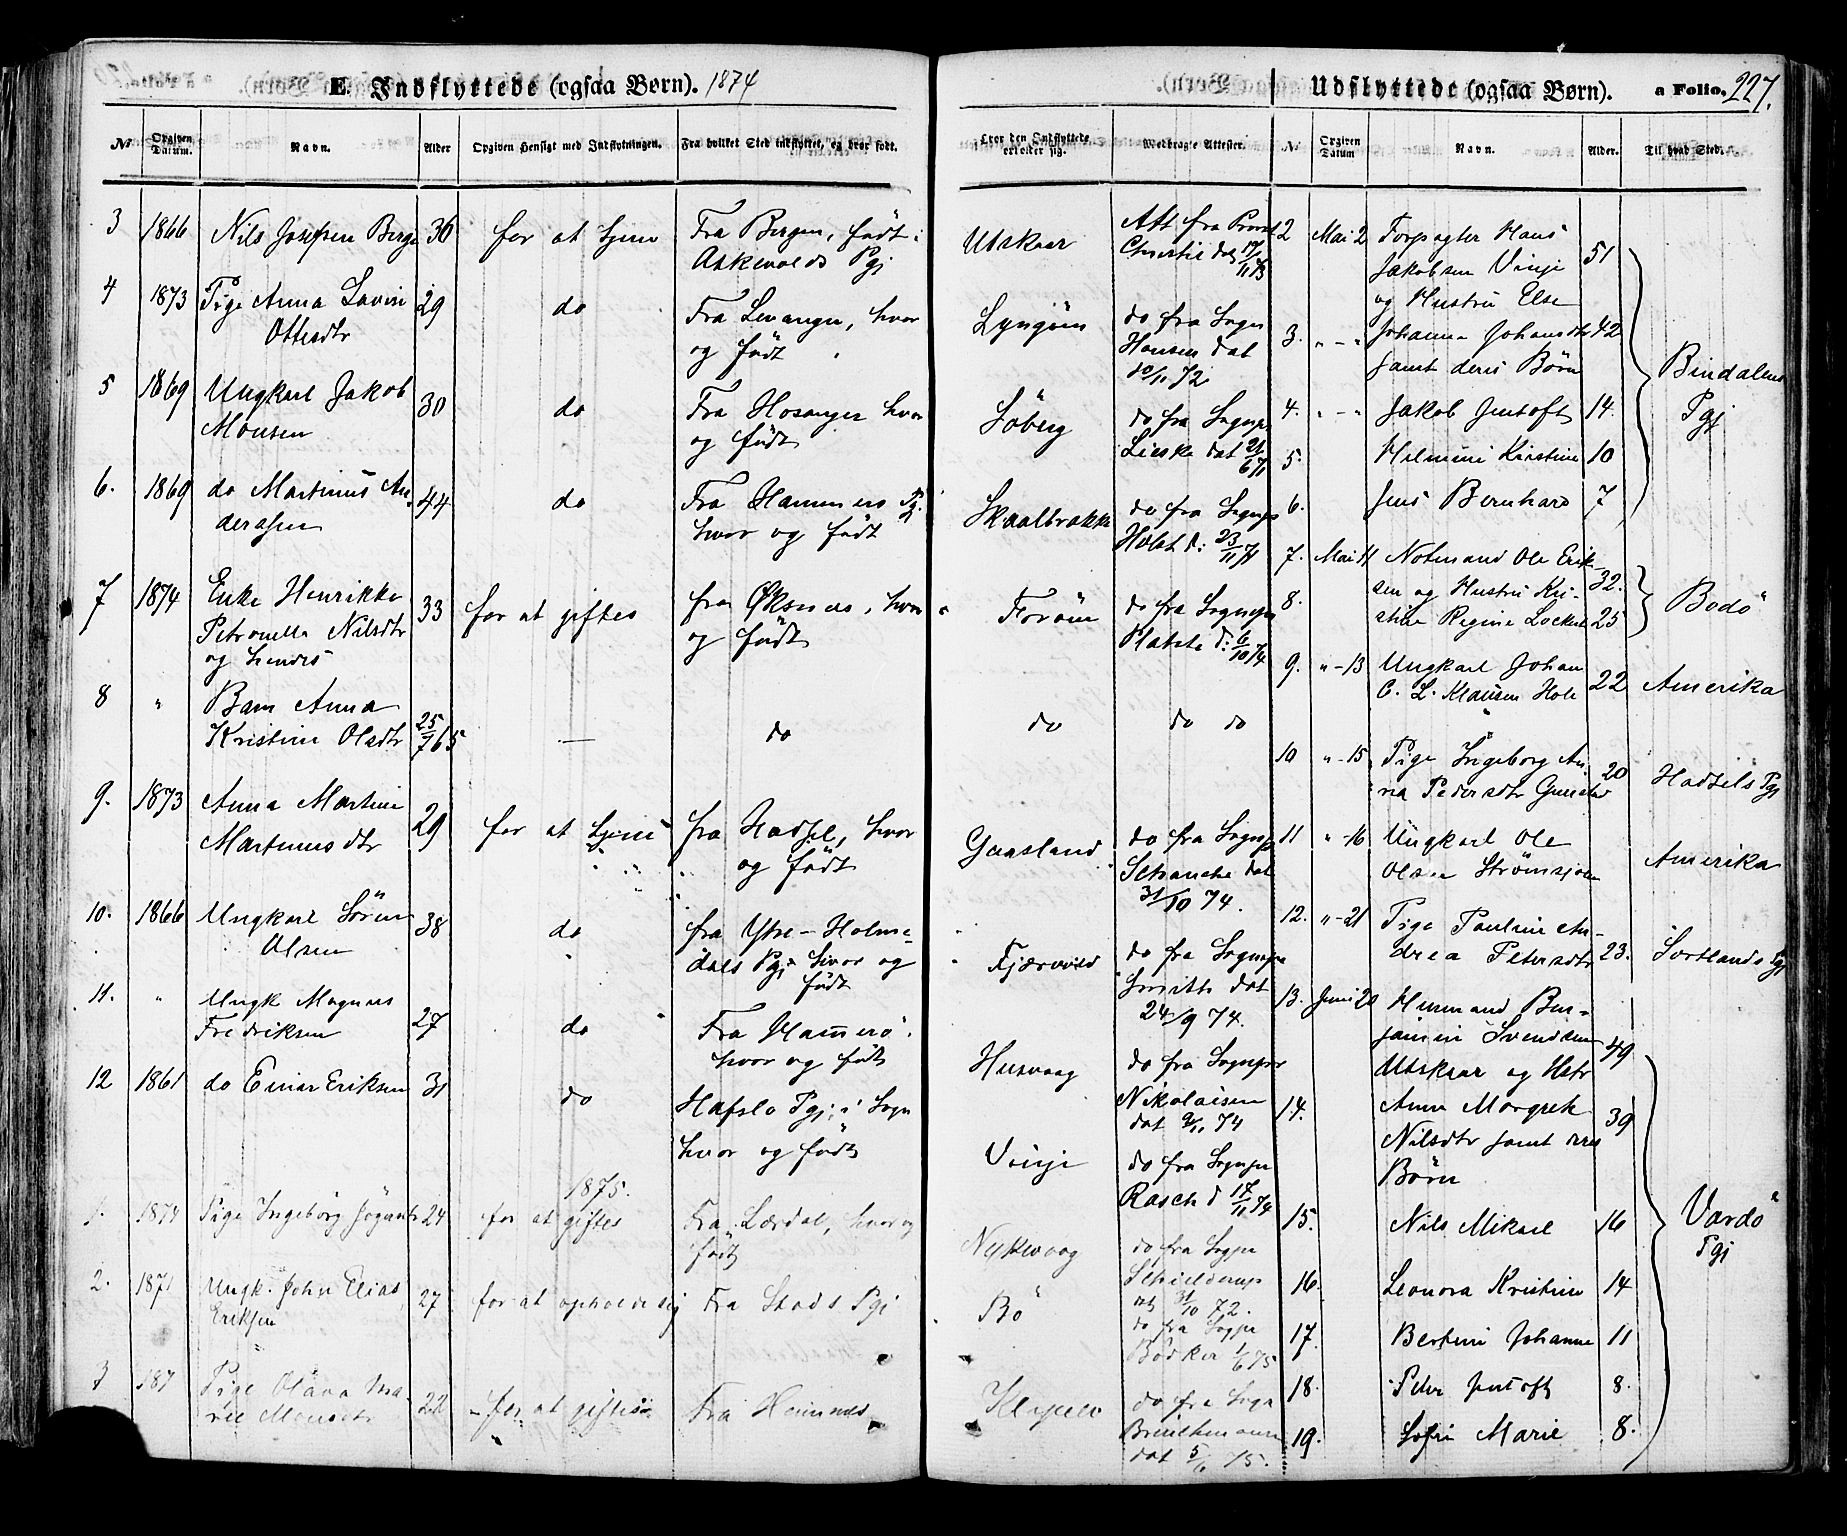 E. Indflyttede (ogsaa Børn). 1874
№ Opgiven Datum. Navn. Alder Opgiven Hensigt med Indflytningen. Fra hvilket Sted indflyttet, og hvor født.
3 1866 Nils Josefsen Berge 36 for at tjene Fra Bergen, født i
Askevolds Pgj
4 1873 Pige Anna Lovise 29 do Fra Levanger, hvor
Ottesdtr og født
5 1869 Ungkarl Jakob 30 do Fra Hosanger hvor
Monsen og født
6. 1869 do Martinus An- 44 do Fra Hammers Pgj.
derasen hvor og født
7 1874 Enke Henrikke 33 for at giftes fra Øksnes, hvor
Petronella Nilsdtr og født
og hendes
8 " Barn Anna
Kristine Olsdtr 25/7 65 — do
9. 1873 Anna Martine 29 for at tjene fra Hadsel, hvor
Martinusdtr og født
10. 1866 Ungkarl Sören 38 do fra Ytre-Holme-
Olsen dals Pgj. hvor og
født
11. " Ungk Magnus
Fredriksen 27 do Fra Hamerö
hvor og født
12 1861 do Einar Eriksen 31 do Hafslo Pgj. i Sogn
hvor og født
1875.
1. 1874 Pige Ingeborg 24 for at giftes Fra Lærdal, hvor og
født
2. 1871 Ungk. John Elias 27 for at opholde sig Fra Stods Pgj
Eriksen
3 187 Pige Olava Ma- 22 for at giftes Fra Hemnes
rie Monsdtr
Udflyttede (ogsaa Børn). a Folio. 227.
Hvor den Indflyttede erholder sig. Medbragte Attester. № Opgiven Datum Navn. Alder. Til hvad Sted.
Utskaar Att fra Provst
Christie dat 17/11 73
Lyngöen do fra Sogn
Hansen dat
10/11 72
Söberg do fra Sognpr
Lieske dat 21/6 71
Skaalbrække do fra Sognpr
Holst d: 23/11 71
Foröen do fra Sognpr
d: 6/10 74
do do do
Gaasland do fra Sognpr
Schanche dat
31/10 74.
Fjærvold do fra Sognpr
Smitt dat
24/9 74.
Husvaag do fra Sognpr
Nikolaisen
dat 9/11 74
Vinje do fra Sognpr
Rasch d 17/11 74
Nykvaag do fra Sogpr
Schielderup
31/10 72.
Bö do fra Sogpr
Bödker 1/6 75
do fra Sogn
dat 5/ 75.
2 Mai 2 Forpagter Hans
Jakobsen Vinje 51
og Hustru Else
3. " - " Johanna Johansdtr 42
samt deres Börn Bindalens
4. " - " Jakob Jentoft 14. Pgj
5. Helmine Kirstine 10
6. Jens Bernhard 7
7. Mai 11 Notmand Ole Erik-
sen og Hustru Kri- 32.
8. stine Regine Lockert 25 Bodö
9. " - 13 Ungkarl Johan
C. L. Klausen Hole 22 Amerika
10 " - 15 Pige Ingeborg An-
na Pedersdtr 20 Hadsels Pgj
11 " - 16 Ungkarl Ole
Olsen Strömsjøen Amerika
12. " - 21 Pige Pauline An-
drea Petersdtr 23. Sortlands Pgj
13. Juni 20 Husmand Ben-
jamin Svendsen 49
Utskaar og Hstr
14. Anne Margrete 39
Nilsdtr samt deres
Börn
15. Nils Mikael 16 Vardö
Pgj
16. Leonora Kristine 14
17. Bertine Johanne 11
18. Peter Jentoft 8.
19. Sofie Marie 8.